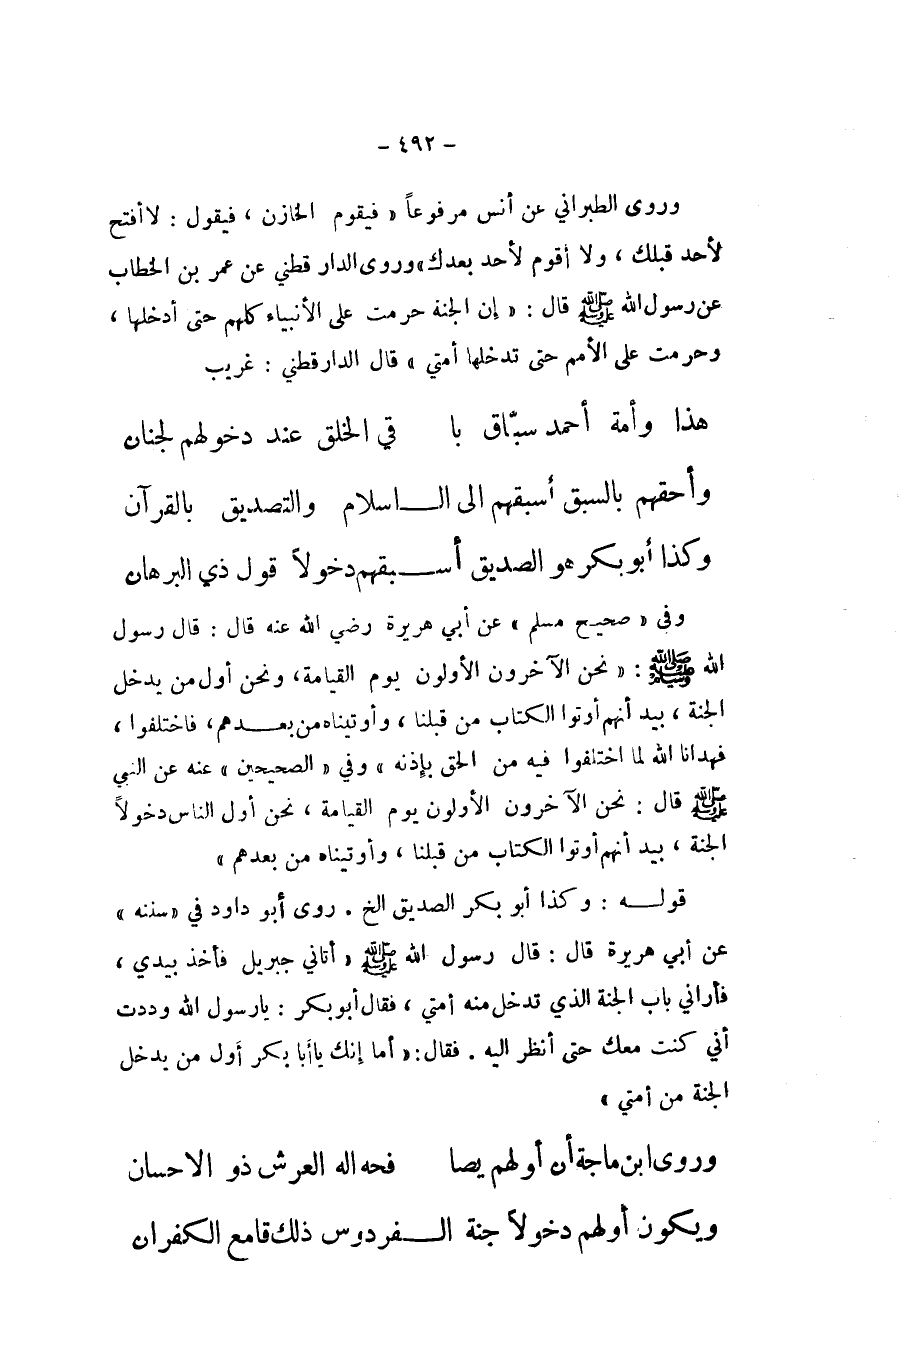 - ٤٩٢ -
وروى الطبراني عن أنس مرفوعاً « فيقوم الخازن ، فيقول : لا أفتح
لأحد قبلك ، ولا أقوم لأحد بعدك» وروى الدار قطني عن عمر بن الخطاب
عن رسول الله ﷺ قال : « إن الجنة حرمت على الأنبياء كلهم حتى أدخلها ،
وحرمت على الأمم حتى تدخلها أمتي » قال الدارقطني : غريب
هذا وأمة أحمد سبّاق با في الخلق عند دخولهم لجنان
وأحقهم بالسبق أسبقهم الى الـــاسلام والتصديق بالقرآن
وكذا أبو بكر هو الصديق أســـبقهم دخولاً قول ذي البرهان
وفي « صحيح مسلم » عن أبي هريرة رضي الله عنه قال : قال رسول
الله ﷺ : « نحن الآخرون الأولون يوم القيامة، ونحن أول من يدخل
الجنة ، بيد أنهم أوتوا الكتاب من قبلنا ، وأوتيناه من بعـــدهم، فاختلفوا ،
فهدانا الله لما اختلفوا فيه من الحق بإذنه » وفي « الصحيحين » عنه عن النبي
ﷺ قال : نحن الآخرون الأولون يوم القيامة ، نحن أول الناس دخولاً
الجنة ، بيد أنهم أوتوا الكتاب من قبلنا ، وأوتيناه من بعدهم »
قولـــه : وكذا أبو بكر الصديق الخ . روى أبو داود في «سننه »
عن أبي هريرة قال : قال رسول الله ﷺ « أتاني جبريل فأخذ بيدي ،
فأراني باب الجنة الذي تدخل منه أمتي ، فقال أبو بكر : يارسول الله وددت
أني كنت معك حتى أنظر اليه . فقال :« أما إنك ياأبا بكر أول من يدخل
الجنة من أمتي »
وروى ابن ماجة أن أولهم يصا فحه اله العرش ذو الاحسان
ويكون أولهم دخولاً جنة الـــفردوس ذلك قامع الكفران